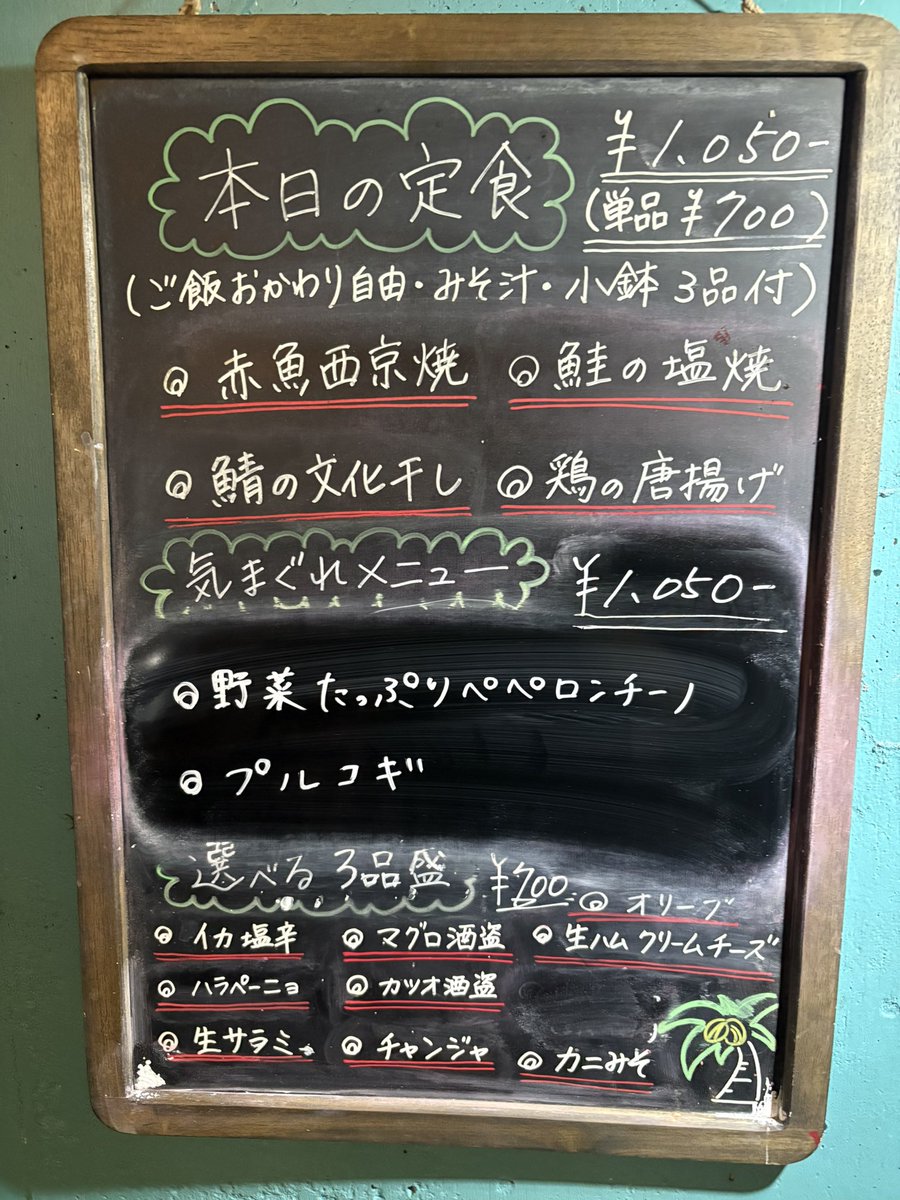 本日の定食 ¥1,050-
(単品¥700)
(ご飯おかわり自由・みそ汁・小鉢3品付)
◎ 赤魚西京焼 ◎ 鮭の塩焼
◎ 鯖の文化干し ◎ 鶏の唐揚げ
気まぐれメニュー ¥1,050-
◎ 野菜たっぷりペペロンチーノ
◎ プルコギ
選べる3品盛 ¥700
◎ オリーブ
◎ イカ塩辛 ◎ マグロ酒盗 ◎ 生ハムクリームチーズ
◎ ハラペーニョ ◎ カツオ酒盗
◎ 生サラミ ◎ チャンジャ ◎ カニみそ